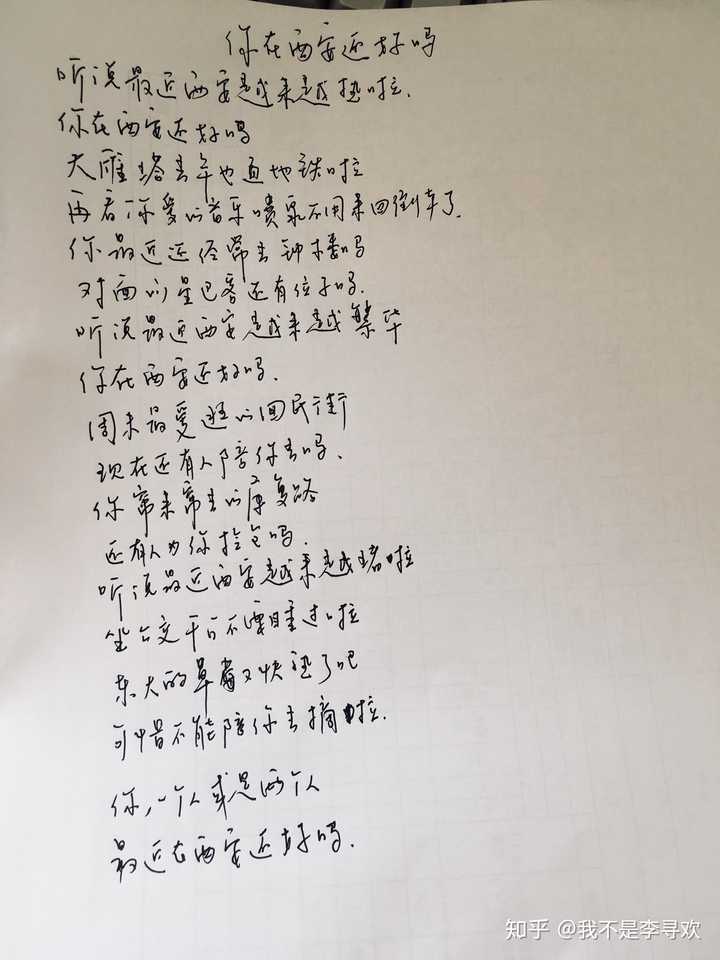 你在西安还好吗
听说最近西安越来越热啦.
你在西安还好吗
大雁塔去年也通地铁啦
再看你爱的音乐喷泉不用来回倒车了.
你最近还经常去钟楼吗
对面的星巴客还有位子吗.
听说最近西安越来越繁华
你在西安还好吗.
周末最爱逛的回民街
现在还有人陪你去吗.
你常来常去的康复路
还有人为你拎包吗.
听说最近西安越来越堵啦
坐公交千万不要睡过啦
东大的草莓又快熟了吧
可惜不能陪你去摘啦.
你,一个人或是两个人
最近在西安还好吗.
知乎 @我不是李寻欢